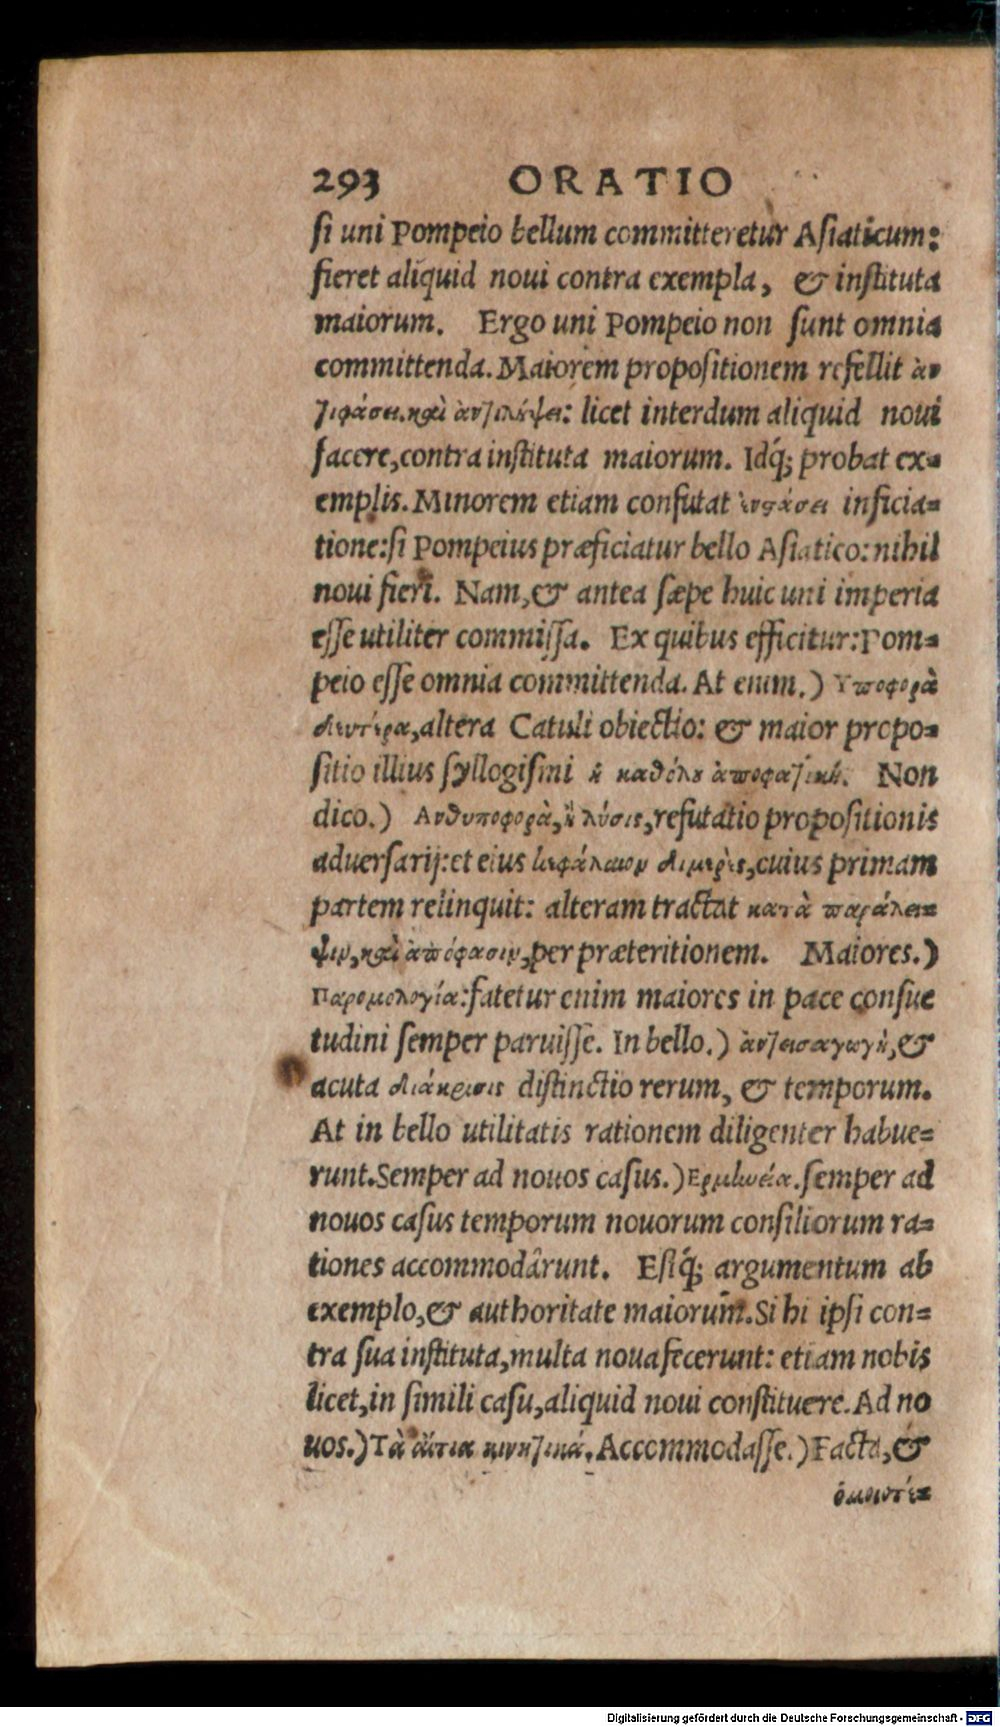 293 ORATIO
si uni Pompeio bellum committeretur Asiaticum:
fieret aliquid noui contra exempla, & instituta
maiorum. Ergo uni Pompeio non sunt omnia
committenda. Maiorem propositionem refellit ἀν-
τιφάσει καὶ ἀντιλήψει: licet interdum aliquid noui
facere, contra instituta maiorum. Idq́; probat ex=
emplis. Minorem etiam confutat ἐνστάσει inficia=
tione: si Pompeius præficiatur bello Asiatico: nihil
noui fieri. Nam, & antea sæpe huic uni imperia
esse utiliter commissa. Ex quibus efficitur: Pom=
peio esse omnia committenda. At enim.) Υποφορὰ
δευτέρα, altera Catuli obiectio: & maior propo=
sitio illius syllogismi ἡ καθόλου ἀποφατική. Non
dico.) Ανθυποφορὰ, ἢ λύσις, refutatio propositionis
aduersarij: et eius κεφάλαιον διμερὲς, cuius primam
partem relinquit: alteram tractat κατὰ παράλει=
ψιν, καὶ ἀπόφασιν, per præteritionem. Maiores.)
Παρομολογία: fatetur enim maiores in pace consue
tudini semper paruisse. In bello.) ἀντεισαγωγὴ, &
acuta διάκρισις distinctio rerum, & temporum.
At in bello utilitatis rationem diligenter habue=
runt. Semper ad nouos casus.) Ερμηνεία. semper ad
nouos casus temporum nouorum consiliorum ra=
tiones accommodârunt. Estq́; argumentum ab
exemplo, & authoritate maiorum. Si hi ipsi con=
tra sua instituta, multa noua fecerunt: etiam nobis
licet, in simili casu, aliquid noui constituere. Ad no
uos.) Τὰ αἴτια κινητικά. Accommodasse.) Facta, &
Digitalisierung gefördert durch die Deutsche Forschungsgemeinschaft - DFG